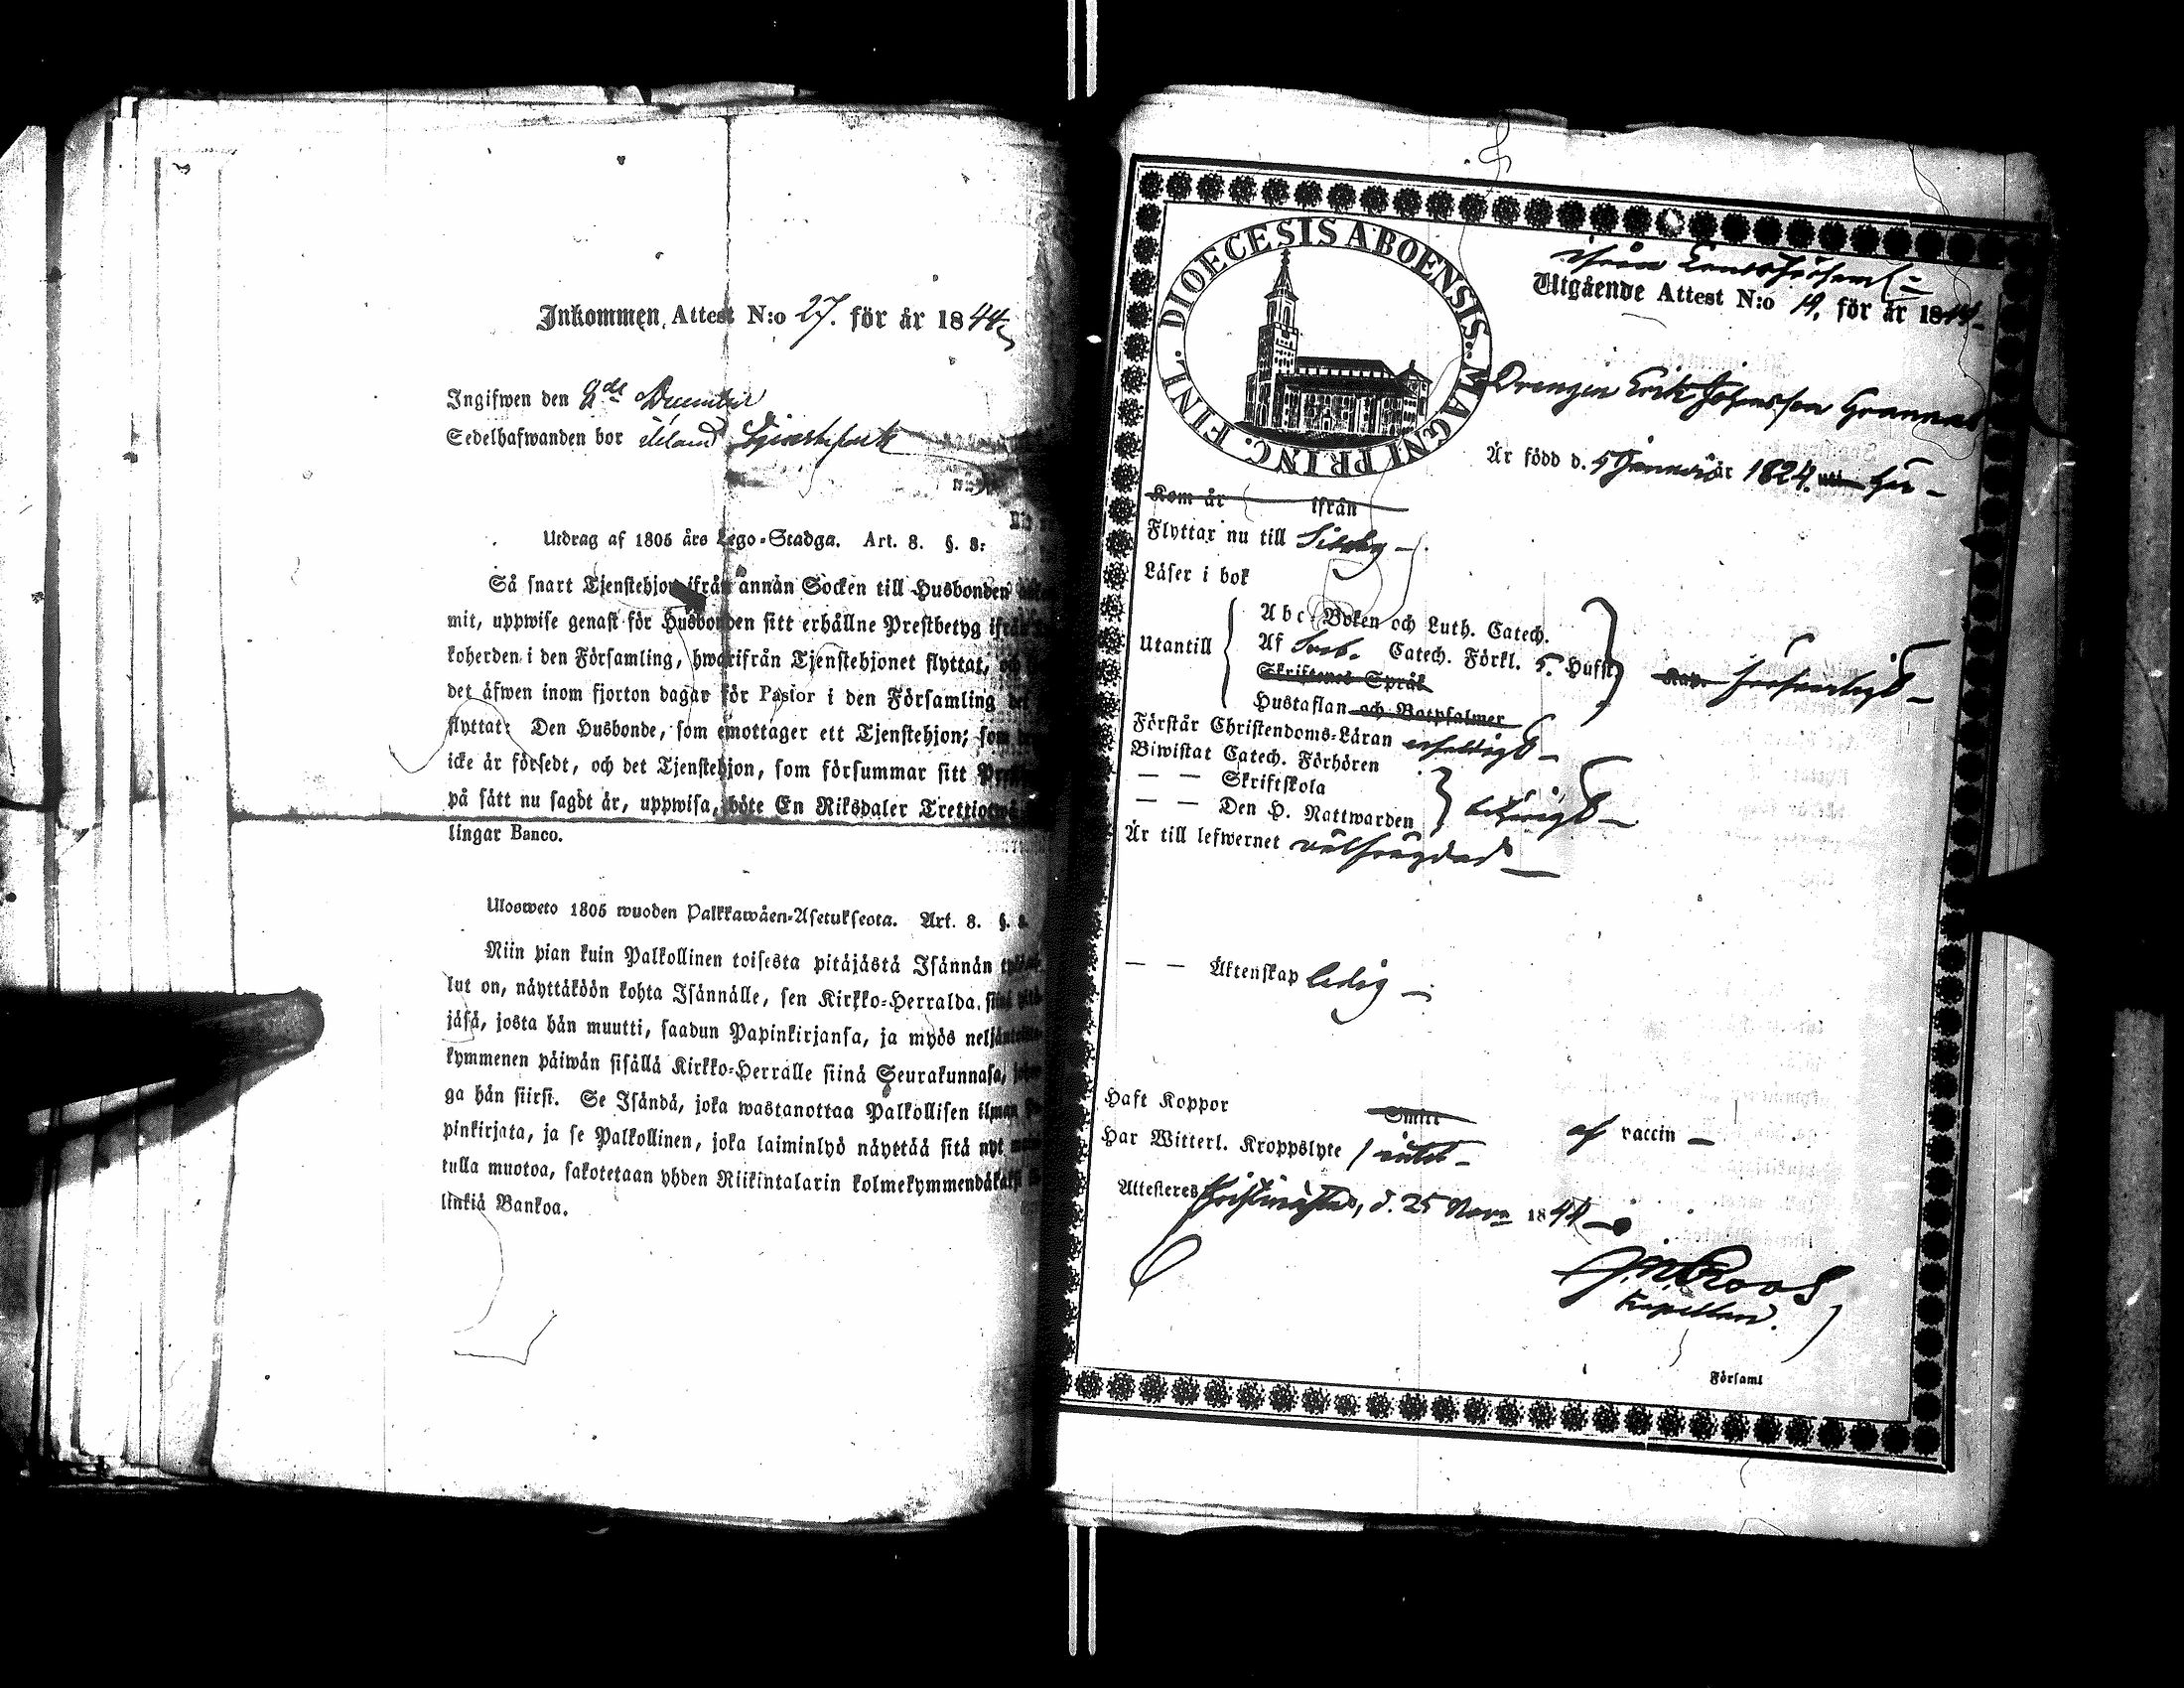 Inkommen, Attest N:o 27. för år 1844
Ingifwen den 2de December
Sedelhafwanden bor
Utdrag af 1805 års Lego-Stadga. Art. 8. §. 8:
Så snart Tjenstehjon ifrån annan Socken till Husbonden
mit, uppwise genast för Husbonden sitt erhållne Prestbetyg ifrån
koherden i den Församling, hwarifrån Tjenstehjonet flyttat, och
det äfwen inom fjorton dagar för Pastor i den Församling det
flyttat: Den Husbonde, som emottager ett Tjenstehjon; som
icke är försedt, och det Tjenstehjon, som försummar sitt
på sätt nu sagdt är, uppwisa, böte En Riksdaler Trettiotwå
lingar Banco.
Ulosweto 1805 wuoden Palkkawäen-Asetuksesta. Art. 8. §. 8.
Niin pian kuin Palkollinen toisesta pitäjästä Isännän
lut on, näyttäköön kohta Isännälle, sen Kirkko-Herralda, siinä
jäsä, josta hän muutti, saadun Papinkirjansa, ja myös
kymmenen päiwän sisällä Kirkko-Herralle siinä Seurakunnasa,
ga hän siirsi. Se Isändä, joka wastanottaa Palkollisen ilman
pinkirjata, ja se Palkollinen, joka laiminlyö näyetää sitä nyt
tulla muotoa, sakotetaan yhden Riikintalarin kolmekymmendäkaksi
linkiä Bankoa.
DIOECESIS ABOENSIS. MAGNI PRINC. FINL.
ifrån
Utgående Attest N:o för år 1844
Drengen Erik Johansson Grannas
Är född d. 5 Januari år 1824 här
Kom år ifrån
Flyttar nu till Sideby
Läser i bok
Abc-Boken och Luth. Catech.
Utantill Af Sveb. Catech. Förkl. 5. Hufst.
Skriftenes Språk
Hustaflan och Botpsalmer
Förstår Christendoms-Läran
Biwistat Catech. Förhören
— — Skriftskola
— — Den H. Nattwarden
Är till lefwernet välfrägdad
— — Äktenskap ledig
Haft Koppor Smitt af vaccin
Har Witterl. Kroppslyte
Attesteres Christinæstad, d. 25 Nov. 1844
Roos
Kapellan.
Församl